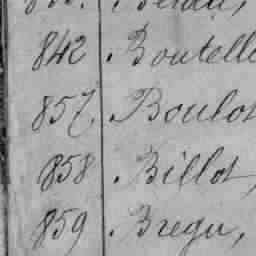 842 Boutelle
857. Boulot
858 Billot,
859 Bregu,